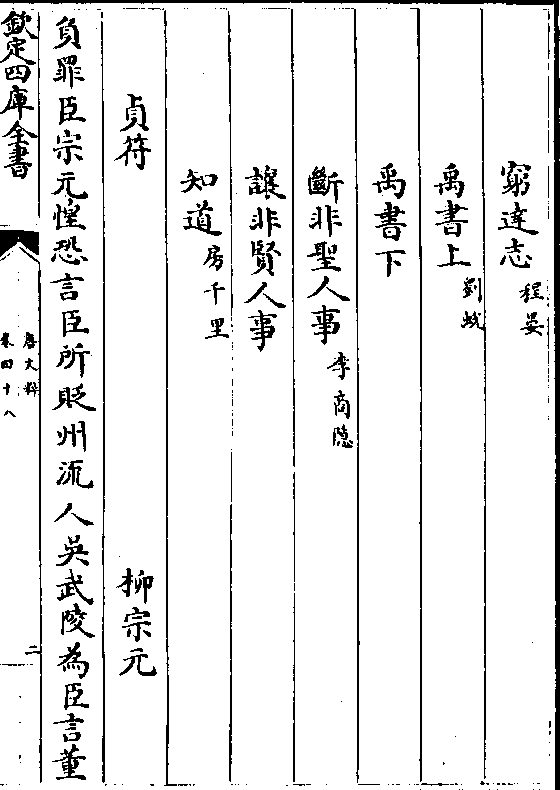 窮達志 程晏
禹書上 劉蛻
禹書下
斷非聖人事 李商隱
讓非賢人事
知道 房千里
貞符 柳宗元
負罪臣宗元惶恐言臣所貶州流人吳武陵為臣言董
欽定四庫全書
唐文粹
卷四十八
二